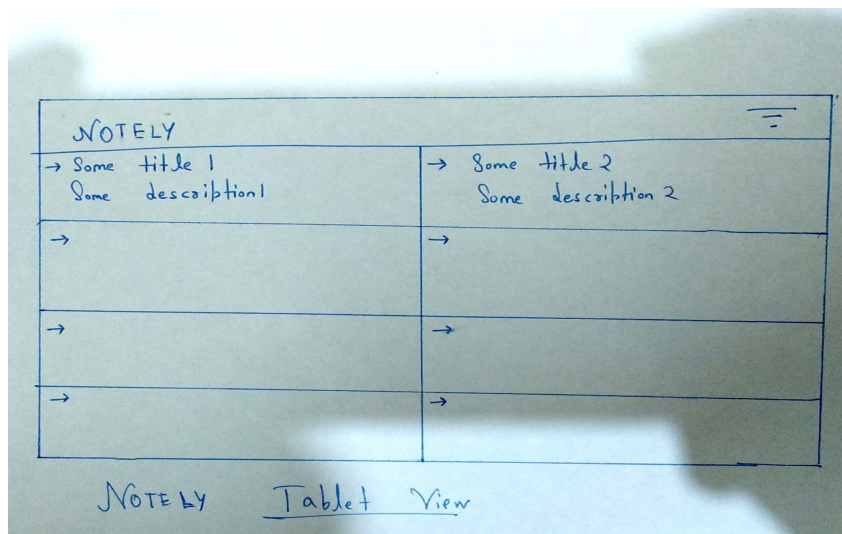 NOTELY
→ Some title 1
Some description1
→ Some title 2
Some description 2
→
→
→
→
→
→
NOTELY Tablet View